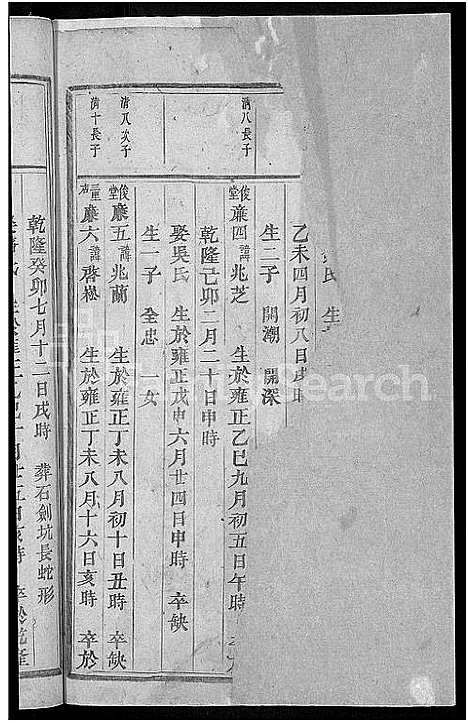 氏 生
乙未四月初八日戌時
生二子 開潮 開深
清八長子
俊堂 廉四 諱 兆芝 生於雍正乙巳九月初五日午時 卒
乾隆己卯二月二十日申時
娶吳氏 生於雍正戊申六月廿四日申時 卒缺
生一子 全忠 一女
清八次子
俊堂 廉五 諱 兆蘭 生於雍正丁未八月初十日丑時 卒缺
清十長子
廉六 諱 啓崧 生於雍正丁未八月十六日亥時 卒於
乾隆癸卯七月十二日戌時 葬石劍坑長蛇形
氏 生於雍正 廿五日亥時 卒於乾隆
Search